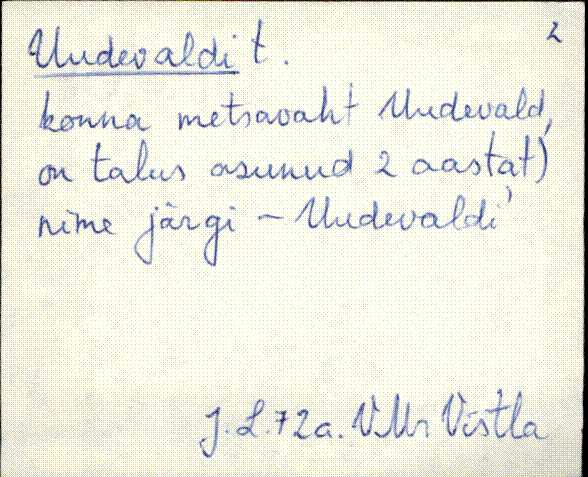 2
Uudevaldi t.
konna metsavaht Uudevald,
on talus asunud 2 aastat)
nime järgi – Uudevaldi
J. L. 72a. VMr Vistla